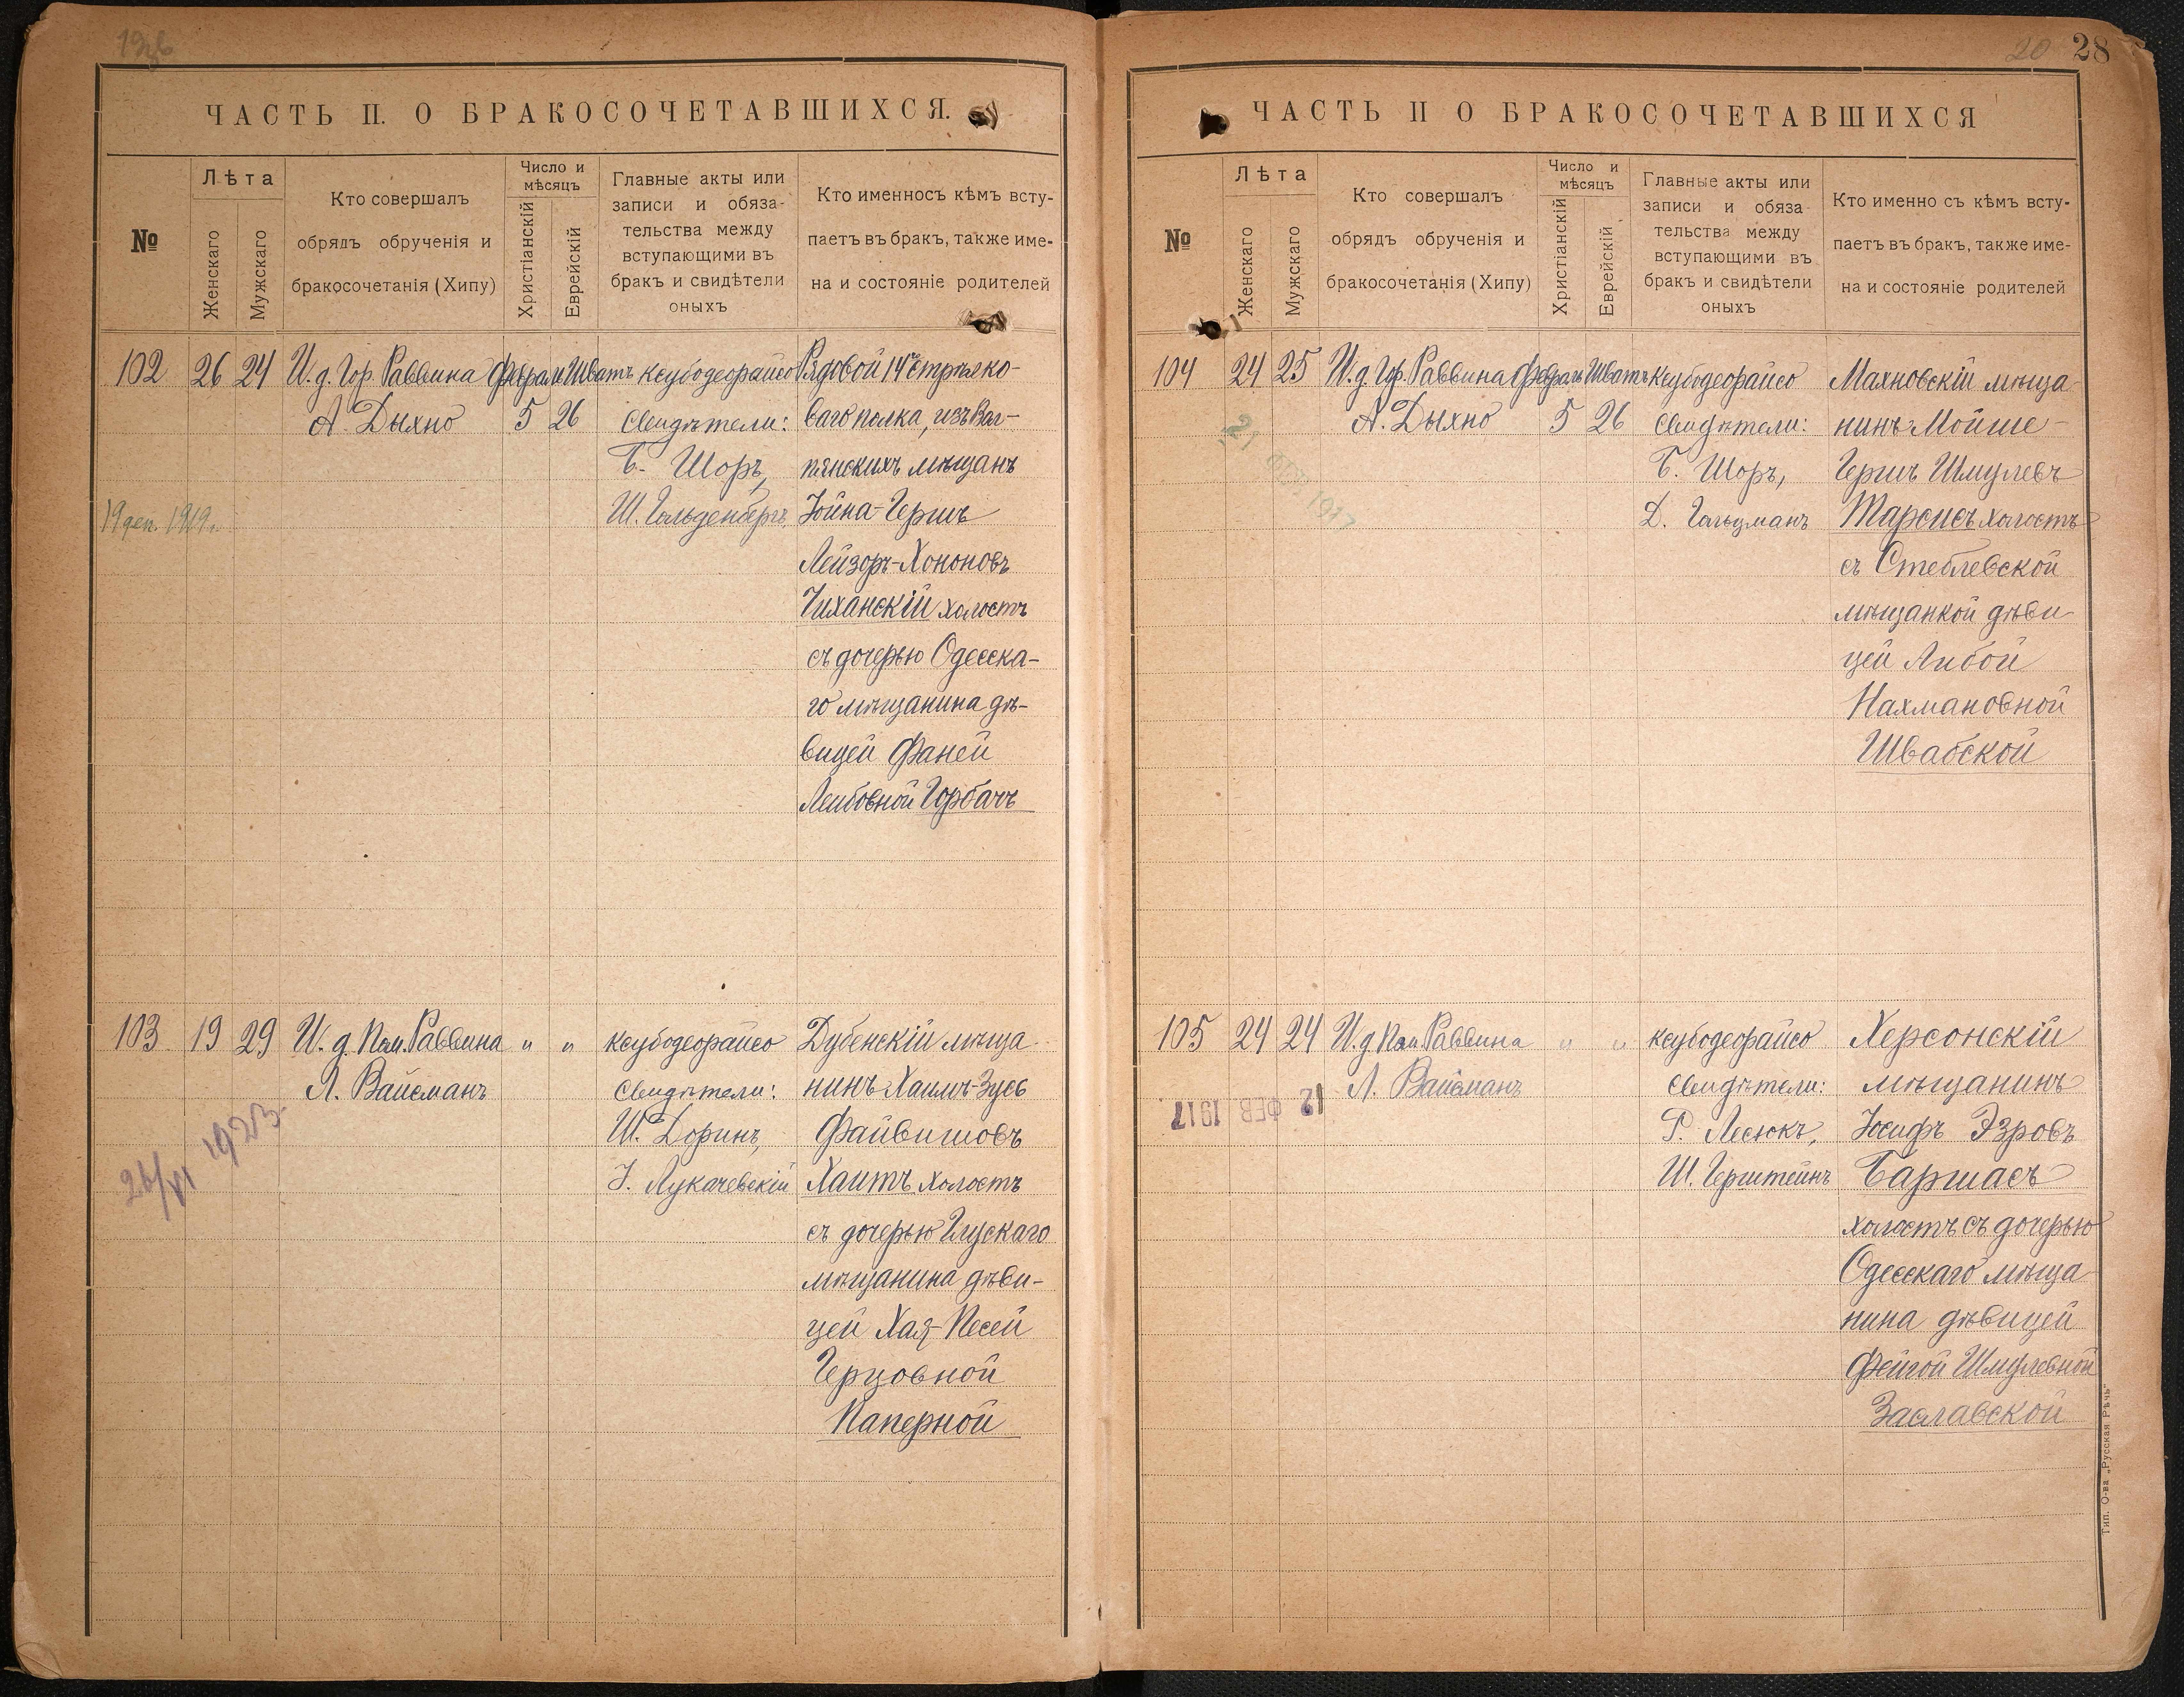 ЧАСТЬ II. О БРАКОСОЧЕТАВШИХСЯ.
№
Лѣта
Женскаго
Мужскаго
Кто совершалъ
обрядъ обрученія и
бракосочетанія (Хипу)
Число и
мѣсяцъ
Христіанскій
Еврейскій
Главные акты или
записи и обяза-
тельства между
вступающими въ
бракъ и свидѣтели
оныхъ
Кто именносъ кѣмъ всту-
паетъ въ бракъ, также име-
на и состояніе родителей
102
26
24
И. д. Гор. Раввина
А. Дыхно
Февраль
5
Шватъ
26
Ксубодеорайсо
Свидѣтели:
Б. Шоръ,
Ш. Гольденбергъ
Рядовой 14го стрѣлко-
ваго полка, изъ
мѣщанъ
Іойна-Гершъ
Лейзоръ-Хононовъ
Чиханскій холостъ
съ дочерью Одесска-
го мѣщанина дѣ-
вицей Фаней
Лейбовной Горбачъ
19 1919 г.
103
19
29
И. д. Пом. Раввина
Л. Вайсманъ
"
"
Ксубодеорайсо
Свидѣтели:
Ш. Доринъ,
І. Лукачевскій
Дубенскій мѣща
нинъ Хаимъ-Зусь
Файвишовъ
Хаитъ холостъ
съ дочерью Глускаго
мѣщанина дѣви-
цей Хая-Песей
Герцовной
Паперной
26/VI 1923
20 28
ЧАСТЬ II О БРАКОСОЧЕТАВШИХСЯ
№
Лѣта
Женскаго
Мужскаго
Кто совершалъ
обрядъ обрученія и
бракосочетанія (Хипу)
Число и
мѣсяцъ
Христіанскій
Еврейскій
Главные акты или
записи и обяза
тельства между
вступающими въ
бракъ и свидѣтели
оныхъ
Кто именно съ кѣмъ всту-
паетъ въ бракъ, также име-
на и состояніе родителей
104
24
25
И. д. Гор. Раввина
А. Дыхно
Февраль
5
Шватъ
26
Ксубодеорайсо
Свидѣтели:
Б. Шоръ,
Д. Гольцманъ
Махновскій мѣща
нинъ Мойше-
Гершъ Шмулевъ
Тарсисъ холостъ
съ Стеблевской
мѣщанкой дѣви
цей Либой
Нахмановной
Швабской
21 ФЕВ 1917
105
24
24
И. д. Пом. Раввина
Л. Вайсманъ
"
"
Ксубодеорайсо
Свидѣтели:
Р. Лесюкъ,
Ш. Герштейнъ
Херсонскій
мѣщанинъ
Іосифъ Эзровъ
Баршасъ
холостъ съ дочерью
Одесскаго мѣща
нина дѣвицей
Фейгой Шмулевной
Заславской
12 ФЕВ 1917
Тип. О-ва „Русская Рѣчь"